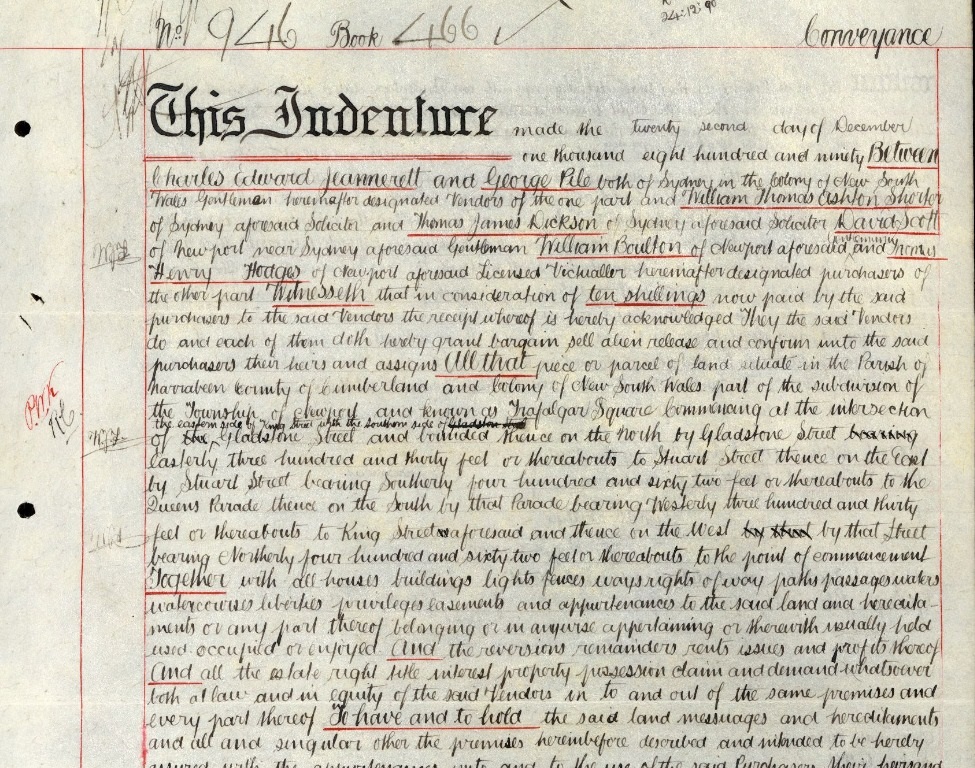 No. 946 Book 466
24.12.90
Conveyance
This Indenture made the twenty second day of December
one thousand eight hundred and ninety Between
Charles Edward Jeannerett and George Pile both of Sydney in the Colony of New South
Wales Gentlemen hereinafter designated Vendors of the one part and William Thomas Ashton Shorter
of Sydney aforesaid Solicitor and Thomas James Dickson of Sydney aforesaid Solicitor David Scott
of Newport near Sydney aforesaid Gentleman William Boulton of Newport aforesaid and Thomas
Henry Hodges of Newport aforesaid Licensed Victualler hereinafter designated purchasers of
the other part Witnesseth that in consideration of ten shillings now paid by the said
purchasers to the said Vendors the receipt whereof is hereby acknowledged They the said Vendors
do and each of them doth hereby grant bargain sell alien release and confirm unto the said
purchasers their heirs and assigns All that piece or parcel of land situate in the Parish of
Narrabeen County of Cumberland and Colony of New South Wales part of the subdivision of
the Township of Newport and known as Trafalgar Square Commencing at the intersection
the eastern side of King Street with the southern side of Gladstone Street
of the Gladstone Street and bounded thence on the North by Gladstone Street bearing
easterly three hundred and thirty feet or thereabouts to Stuart Street thence on the East
by Stuart Street bearing Southerly four hundred and sixty two feet or thereabouts to the
Queens Parade thence on the South by that Parade bearing Westerly three hundred and thirty
feet or thereabouts to King Street aforesaid and thence on the West by that by that Street
bearing Northerly four hundred and sixty two feet or thereabouts to the point of commencement
Together with all houses buildings lights fences ways rights of way paths passages waters
watercourses liberties privileges easements and appurtenances to the said land and heredita-
ments or any part thereof belonging or in anywise appertaining or therewith usually held
used occupied or enjoyed And the reversions remainders rents issues and profits thereof
And all the estate right title interest property possession claim and demand whatsoever
both at law and in equity of the said Vendors in to and out of the same premises and
every part thereof To have and to hold the said land messuages and hereditaments
and all and singular other the premises hereinbefore described and intended to be hereby
assured with the appurtenances unto and to the use of the said Purchasers their heirs and